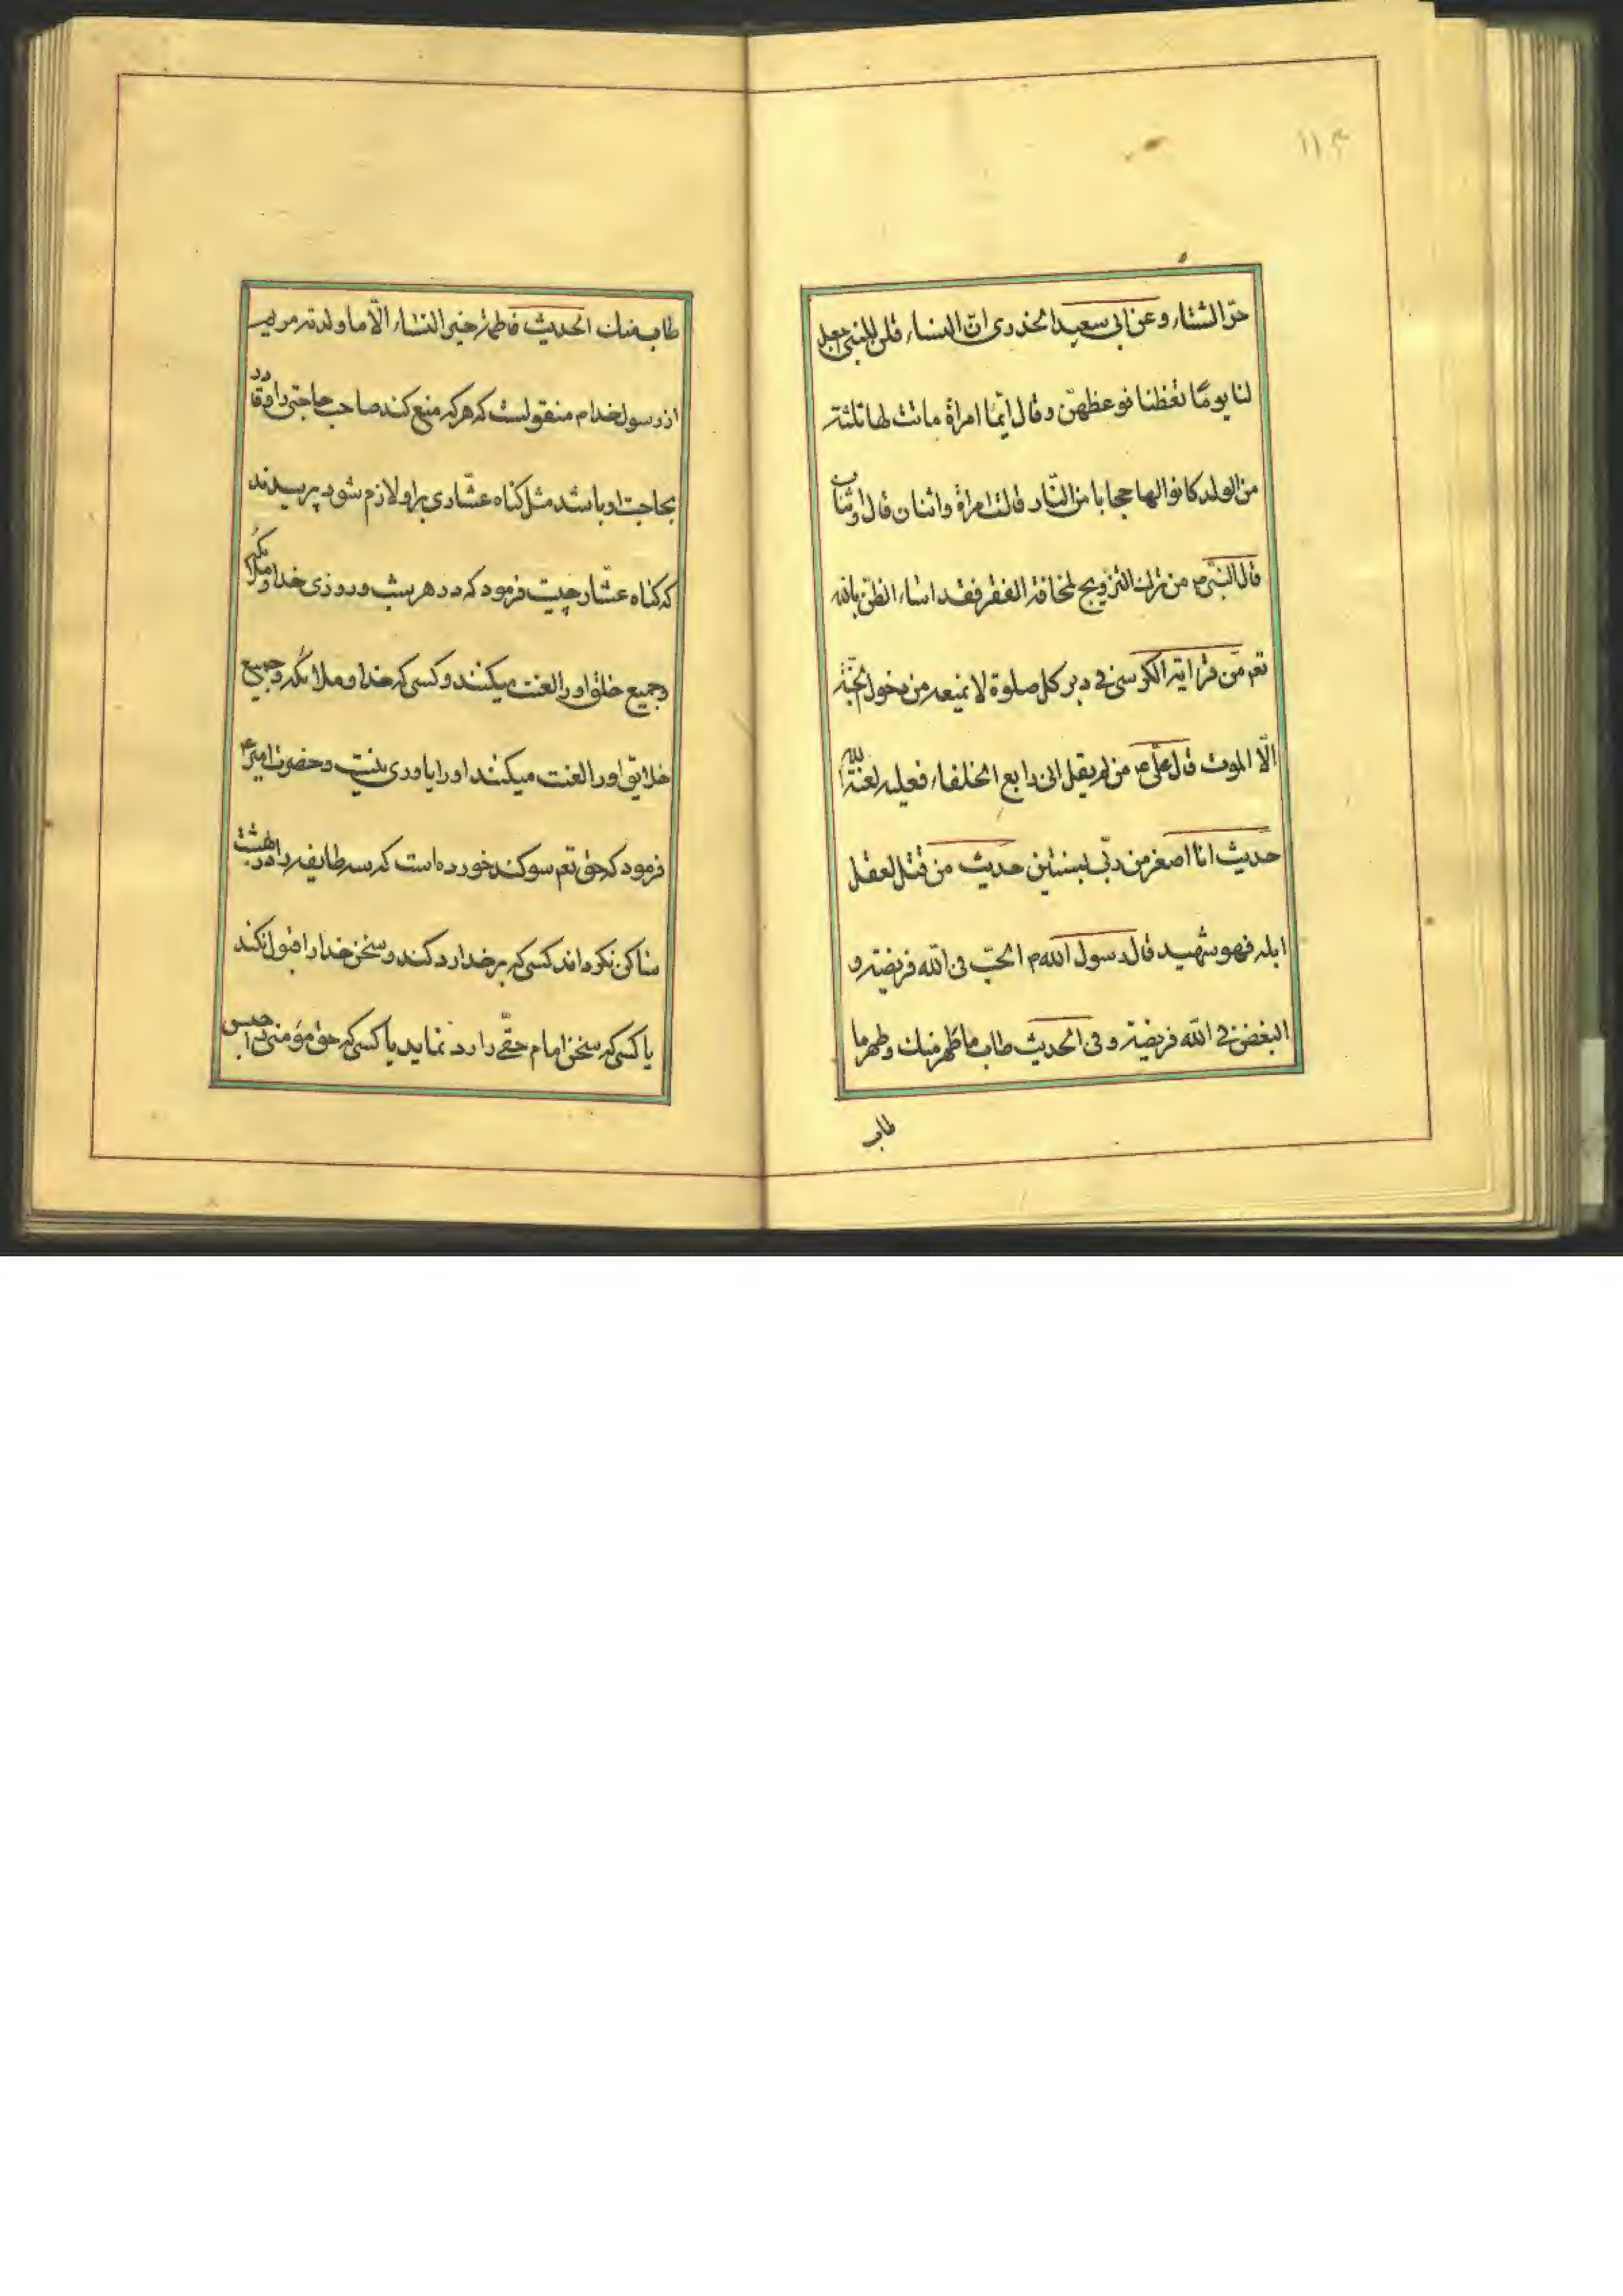 ۱۱۳
حرّ الشتاء وعن ابى سعيد الخدرى انّ النساء قلن للنبى اجعل
لنا يومًا تعظنا فوعظهنّ وقال ايّما امراة ماتت لها ثلثة
من الولد كانوا لها حجابا من النّار قالت امراة واثنان قال واثنان
قال النبىّ ص من ترك التزويج لمخافة الفقر فقد اساء الظنّ بالله
تعم من قرا اية الكرسى فى دبر كل صلوة لا يمنعه من دخول الجنّة
الّا الموت قال على ع من لم يقل انى رابع الخلفاء فعليه لعنة الله
حديث انا اصغر من ربّى بسنتين حديث من قتل لعقل
ابله فهو شهيد قال رسول الله م الحبّ فى الله فريضة و
البغض فى الله فريضة و فى الحديث طاب ما طهر منك وطهر ما
طاب
طاب منك الحديث فاطمة خير النساء الّا ما ولدته مريم
از رسول خدا م منقولست كه هركه منع كند صاحب حاجتى را و قادر
بحاجت او باشد مثل كناه عشّارى بر او لازم شود پرسيدند
كه كناه عشّار چيست فرمود كه در هر شب و روزى خدا و ملائكه
و جميع خلق او را لعنت ميكنند و كسى كه خدا و ملائكه و جميع
خلايق او را لعنت ميكنند او را ياورى نيست و حضرت امير ع
فرمود كه حق تعم سوكند خورده است كه سه طايفه را در بهشت
ساكن نكرداند كسى كه بر خدا رد كند و سخن خدا را قبول نكند
يا كسى كه سخن امام حقّى را رد نمايد يا كسى كه حق مؤمنى را حبس